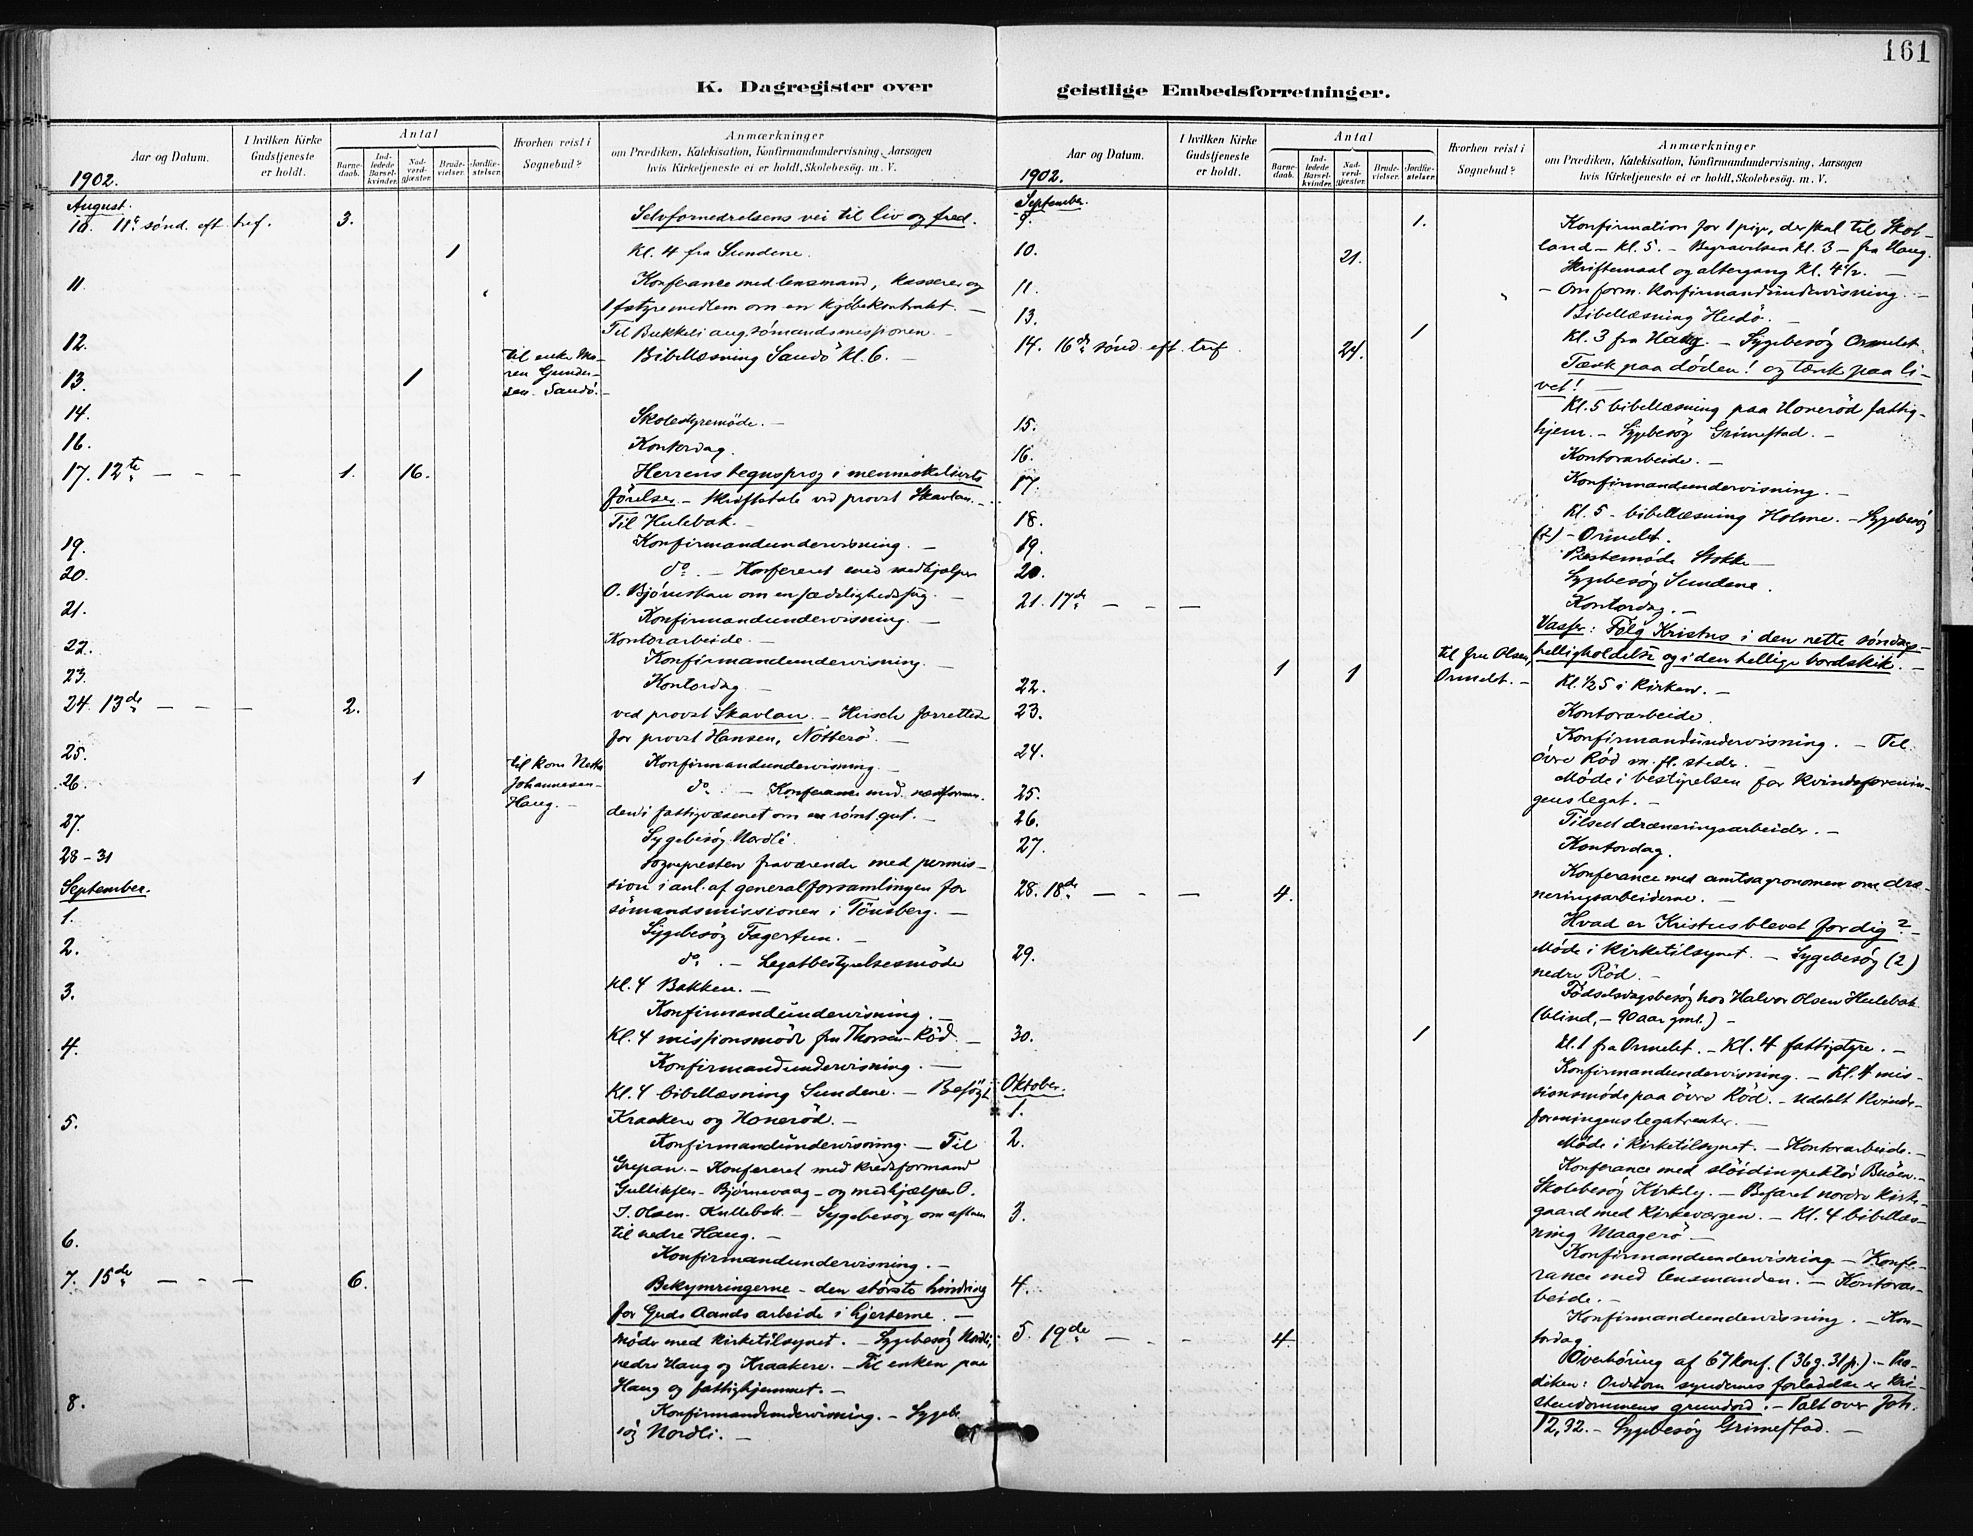 161
K. Dagregister over geistlige Embedsforretninger.
Aar og Datum.
I hvilken Kirke Gudstjeneste er holdt.
Antal
Barnedaab.
Indledede Barselkvinder.
Nadverdgjæster.
Brudevielser.
Jordfæstelser.
Hvorhen reist i Sognebud?
Anmærkninger
om Prædiken, Katekisation, Konfirmandundervisning, Aarsagen
hvis Kirketjeneste ei er holdt, Skolebesøg. m. V.
1902.
August.
10. 11te sønd. eft. tref. 3. Selvfornedrelsens vei til liv og fred.
1 Kl. 4 fra Sundene.
11. Konferance med lensmand, kasserer og
1 fstyremedlem om en kjøbekontrakt. —
Til Bukkeli ang. sømandsmissionen. —
12. Bibellæsning Sandö kl. 6. —
13. 1 til enke Maren Gundersen Sandö. —
14. Skolestyremöde. —
16. Kontordag.
17. 12te — - — 1. 16. Herrens tegnsprog i menneskelivets
förelser. — Skriftetale ved provst Skavlan. —
Til Hulebak. —
19. Konfirmandundervisning. —
20. do. — Konfereret med medhjælper
O. Bjørnskau om en sædelighedssag. —
21. Konfirmandundervisning. —
Kontorarbeide. —
22. Konfirmandundervisning. —
23. Kontordag —
24. 13de — - — 2. ved provst Skavlan. — Hirsch forrettede
for provst Hansen, Nötterö. —
25. Konfirmandundervisning. —
26. 1 til kone Johannesen Haug. — do. — Konferance med
i fattigvæsenet om en römt gut. —
27. Sygebesög Nordli
28-31 Sognepresten fraværende med permission
i anl. af generalforsamlingen for
sömandsmissionen i Tönsberg. —
September.
1. Sygebesög Fagertun. —
2. do. — Legatbestyrelsesmöde
kl. 4 Bakken. —
3. Konfirmandundervisning. —
Kl. 4 missionsmöde fru Thorsen-Röd —
4. Konfirmandundervisning. —
Kl. 4 bibellæsning Sundene. — Besögt
Kraakere og Honeröd. —
5. Konfirmandundervisning. — Til
Grepan. — Konfereret med kredsformand
Gulliksen - Bjørnevaag - og medhjælper O.
J. Olsen - Hullebak. — Sygebesög om aftenen
til nedre Haug. —
6. Konfirmandundervisning. —
7. 15de — - — 6. Bekymringerne — den störste hindring
for Guds Aands arbeide i hjerterne. —
Möde med kirketilsynet. — Sygebesög Nordli,
nedre Haug og Kraakere. — Til enken paa
Haug og fattighjemmet. —
8. Konfirmandundervisning. — Sygebesög
Nordli. —
Aar og Datum.
I hvilken Kirke Gudstjeneste er holdt.
Antal
Barnedaab.
Indledede Barselkvinder.
Nadverdgjæster.
Brudevielser.
Jordfæstelser.
Hvorhen reist i Sognebud?
Anmærkninger
om Prædiken, Katekisation, Konfirmandundervisning, Aarsagen
hvis Kirketjeneste ei er holdt, Skolebesøg. m. V.
1902.
September.
9. 1. Konfirmation for 1 pige, der skal til Skotland
— kl. 5. — Begravelsen kl. 3 — fra Haug.
10. 21. Skriftemaal og altergang Kl. 4½. —
— Om form. konfirmandundervisning. —
11. Bibellæsning Hudö. —
13. 1 Kl. 3 fra Haug. — Sygebesög Ormelet.
14. 16de sönd. eft. tref. 24. Tænk paa döden! og tænk paa livet! —
Kl. 5 bibellæsning paa Honeröd fattighjem.
— Sygebesög Grimestad. —
15. Kontorarbeide. —
16. Konfirmandundervisning. —
17. Kl. 5 - bibellæsning Holme. — Sygebesög
— Ormelet.
18. Prestemöde Stokke —
19. Sygebesög Sundene.
20. Kontordag. —
21. 17de — - — Vasser: Fölg Kristus i den rette söndagshelligholdelse
og i den hellige bordskik. —
1 1 til fru Olsen, Ormelet. — Kl. ½5 i kirken. —
22. Kontorarbeide.
23. Konfirmandundervisning. — Til
övre Röd m. fl. steder. —
24. Möde i bestyrelsen for Kvindeforeningens
legat. —
25. Tilseet dræneringsarbeider. —
26. Kontordag.
27. Konferance med amtsagronomen om dræneringsarbeiderne. —
28. 18de — - — 4. Hvad er Kristus blevet for dig? —
Möde i kirketilsynet. — Sygebesög (2)
nedre Röd. —
29. Födselsdagsbesög hos Halvor Olsen Hulebak
(blind, — 90 aar gml.) —
30. 1 Kl. 1 fra Ormelet. — Kl. 4 fattigstyre. —
Oktober.
1. Konfirmandundervisning. — Kl. 4 missionsmöde
paa övre Röd. — Uddelt Kvindeforeningens
legatrenter. —
2. Möde i kirketilsynet. — Kontorarbeide. —
Konferance med slöidinspektör —
Skolebesög Kirkely. — Befaret nordre kirkegaard
med kirkeværgen. — Kl. 4 bibellæsning
Maagerö —
3. Konfirmandundervisning — Konferance
med lensmanden. — Kontorarbeide. —
4. Konfirmandundervisning. — Kontordag
5. 19de — - — 4. Overhöring af 67 konf. (36 g. 31 p.) — Prædiken:
Ordet om syndernes forladelse er kristendommens
grundord. — Talt over Joh.
12,32. — Sygebesög Grimestad. —